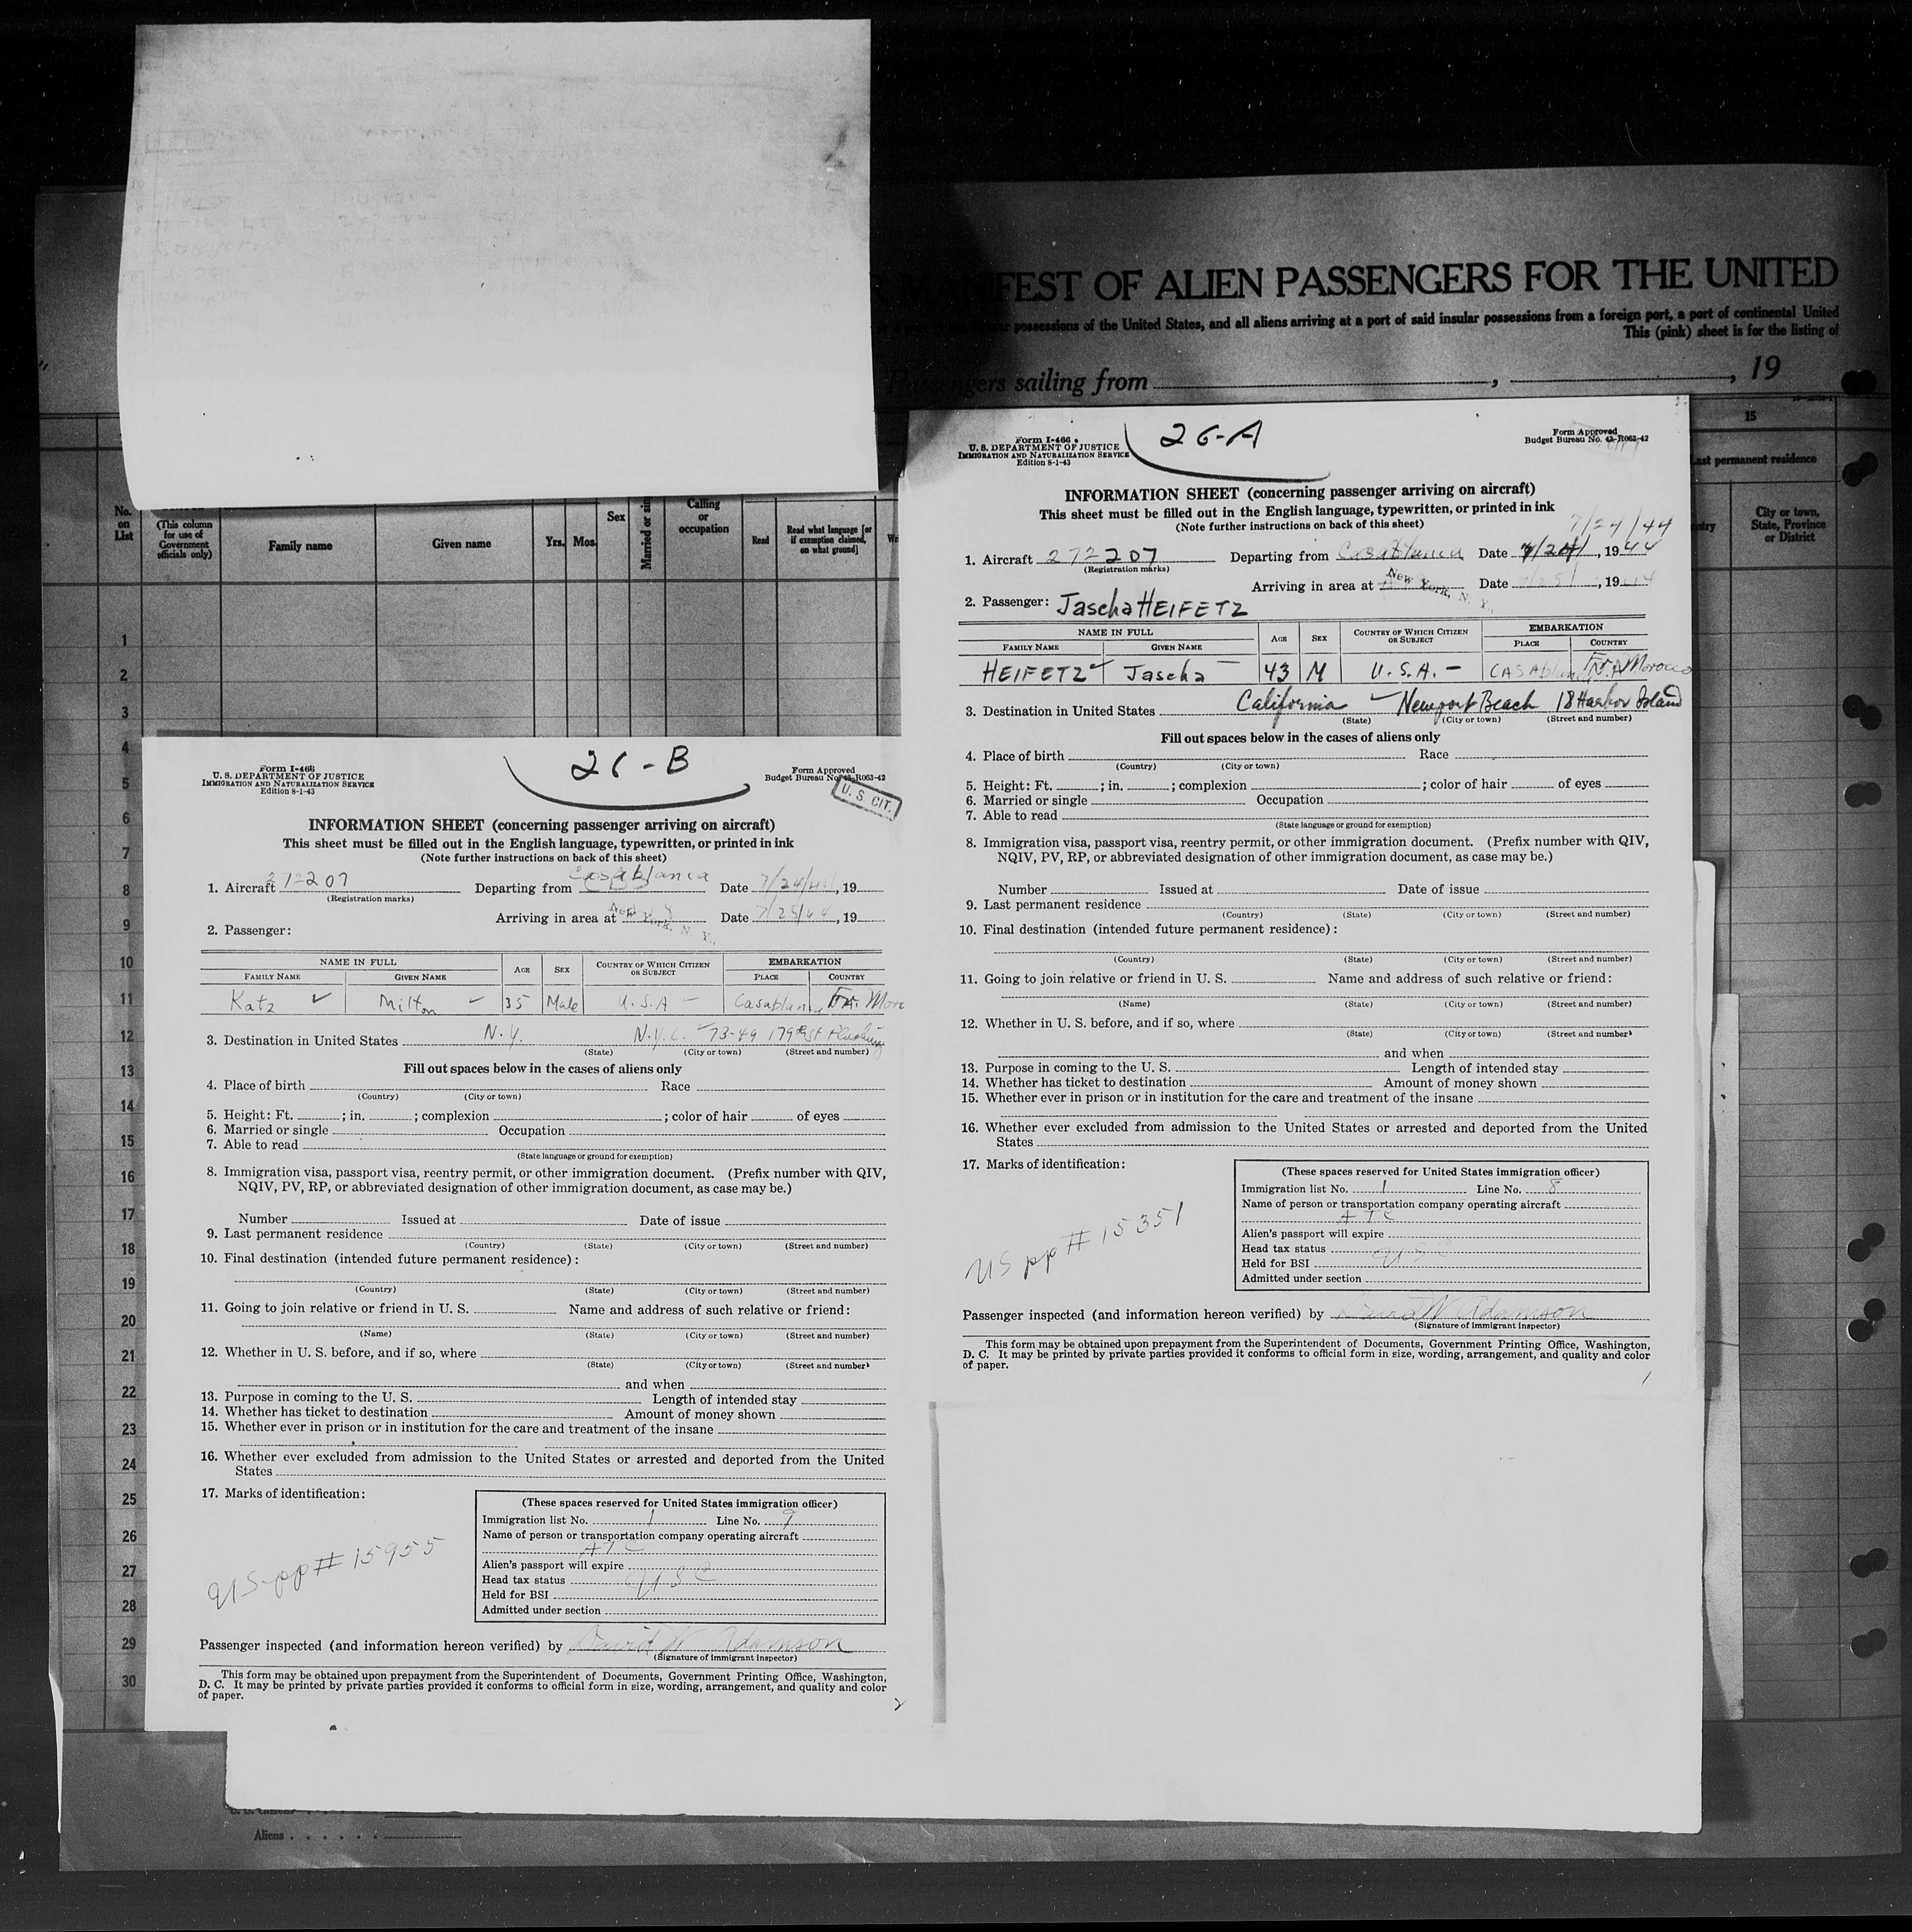 MANIFEST OF ALIEN PASSENGERS FOR THE UNITED
possessions of the United States, and all aliens arriving at a port of said insular possessions from a foreign port, a port of continental United
This (pink) sheet is for the listing of
Passengers sailing from , , 19
15
Last permanent residence
No. on List
(This column for use of Government officials only)
Family name
Given name
Yrs. Mos.
Sex
Married or sin
Calling or occupation
Read
Read what language [or if exemption claimed, on what ground]
City or town, State, Province or District
1
2
3
4
5
6
7
8
9
10
11
12
13
14
15
16
17
18
19
20
21
22
23
24
25
26
27
28
29
30
Aliens
Form I-466
U. S. DEPARTMENT OF JUSTICE
IMMIGRATION AND NATURALIZATION SERVICE
Edition 8-1-43
26-B
Form Approved
Budget Bureau No. 43-R063-42
U. S. CIT.
INFORMATION SHEET (concerning passenger arriving on aircraft)
This sheet must be filled out in the English language, typewritten, or printed in ink
(Note further instructions on back of this sheet)
1. Aircraft 272207 Departing from Casablanca Date 7/24/44, 19
(Registration marks)
Arriving in area at New York, N. Y., Date 7/25/44, 19
2. Passenger:
NAME IN FULL AGE SEX COUNTRY OF WHICH CITIZEN OR SUBJECT EMBARKATION
FAMILY NAME GIVEN NAME PLACE COUNTRY
Katz ✓ Milton — 35 Male U.S.A — Casablanca Fr. Moro
3. Destination in United States N.Y. N.Y.C. 73-49 179th St Flushing
(State) (City or town) (Street and number)
Fill out spaces below in the cases of aliens only
4. Place of birth Race
(Country) (City or town)
5. Height: Ft. ; in. ; complexion ; color of hair of eyes
6. Married or single Occupation
7. Able to read
(State language or ground for exemption)
8. Immigration visa, passport visa, reentry permit, or other immigration document. (Prefix number with QIV,
NQIV, PV, RP, or abbreviated designation of other immigration document, as case may be.)
Number Issued at Date of issue
9. Last permanent residence
(Country) (State) (City or town) (Street and number)
10. Final destination (intended future permanent residence):
(Country) (State) (City or town) (Street and number)
11. Going to join relative or friend in U. S. Name and address of such relative or friend:
(Name) (State) (City or town) (Street and number)
12. Whether in U. S. before, and if so, where
(State) (City or town) (Street and number)
and when
13. Purpose in coming to the U. S. Length of intended stay
14. Whether has ticket to destination Amount of money shown
15. Whether ever in prison or in institution for the care and treatment of the insane
16. Whether ever excluded from admission to the United States or arrested and deported from the United
States
17. Marks of identification:
US pp # 15955
(These spaces reserved for United States immigration officer)
Immigration list No. 1 Line No. 9
Name of person or transportation company operating aircraft
ATC
Alien's passport will expire
Head tax status USC
Held for BSI
Admitted under section
Passenger inspected (and information hereon verified) by David W Adamson
(Signature of immigrant inspector)
This form may be obtained upon prepayment from the Superintendent of Documents, Government Printing Office, Washington,
D. C. It may be printed by private parties provided it conforms to official form in size, wording, arrangement, and quality and color
of paper.
2
Form I-466
U. S. DEPARTMENT OF JUSTICE
IMMIGRATION AND NATURALIZATION SERVICE
Edition 8-1-43
26-A
Form Approved
Budget Bureau No. 43-R063-42
INFORMATION SHEET (concerning passenger arriving on aircraft)
This sheet must be filled out in the English language, typewritten, or printed in ink
(Note further instructions on back of this sheet)
7/24/44
1. Aircraft 272207 Departing from Casablanca Date 7/24/, 1944
(Registration marks)
Arriving in area at New York, N. Y., Date 7/25/, 1944
2. Passenger: Jascha HEIFETZ
NAME IN FULL AGE SEX COUNTRY OF WHICH CITIZEN OR SUBJECT EMBARKATION
FAMILY NAME GIVEN NAME PLACE COUNTRY
HEIFETZ ✓ Jascha — 43 M U.S.A. — CASABlanca Fr. Morocco
3. Destination in United States California ✓ Newport Beach 18 Harbor Island
(State) (City or town) (Street and number)
Fill out spaces below in the cases of aliens only
4. Place of birth Race
(Country) (City or town)
5. Height: Ft. ; in. ; complexion ; color of hair of eyes
6. Married or single Occupation
7. Able to read
(State language or ground for exemption)
8. Immigration visa, passport visa, reentry permit, or other immigration document. (Prefix number with QIV,
NQIV, PV, RP, or abbreviated designation of other immigration document, as case may be.)
Number Issued at Date of issue
9. Last permanent residence
(Country) (State) (City or town) (Street and number)
10. Final destination (intended future permanent residence):
(Country) (State) (City or town) (Street and number)
11. Going to join relative or friend in U. S. Name and address of such relative or friend:
(Name) (State) (City or town) (Street and number)
12. Whether in U. S. before, and if so, where
(State) (City or town) (Street and number)
and when
13. Purpose in coming to the U. S. Length of intended stay
14. Whether has ticket to destination Amount of money shown
15. Whether ever in prison or in institution for the care and treatment of the insane
16. Whether ever excluded from admission to the United States or arrested and deported from the United
States
17. Marks of identification:
US pp # 15351
(These spaces reserved for United States immigration officer)
Immigration list No. 1 Line No. 8
Name of person or transportation company operating aircraft
ATC
Alien's passport will expire
Head tax status USC
Held for BSI
Admitted under section
Passenger inspected (and information hereon verified) by David W Adamson
(Signature of immigrant inspector)
This form may be obtained upon prepayment from the Superintendent of Documents, Government Printing Office, Washington,
D. C. It may be printed by private parties provided it conforms to official form in size, wording, arrangement, and quality and color
of paper.
1